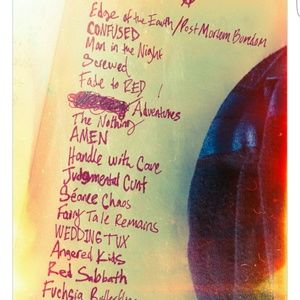 Edge of the Earth/Post Mortem Boredom
CONFUSED
Man in the Night
Screwed
Fade to RED!
Adventures
The Nothing
AMEN
Handle with Care
Judgmental Cunt
Séance Chaos
Fairy Tale Remains
WEDDING TUX
Angered Kids
Red Sabbath
Fuchsia